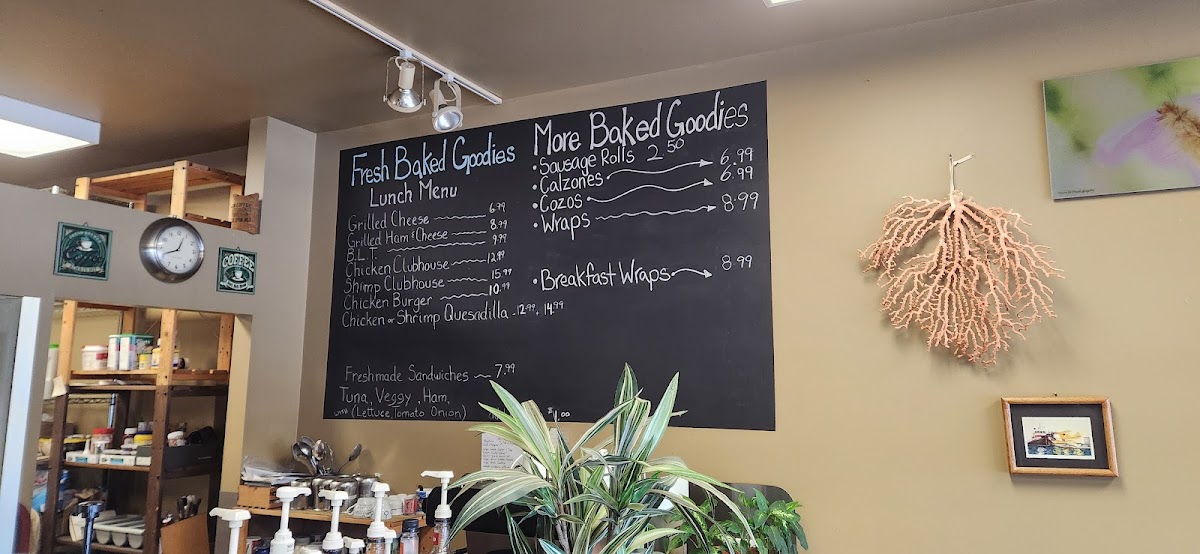 Fresh Baked Goodies
Lunch Menu
Grilled Cheese 6.99
Grilled Ham & Cheese 8.99
B.L.T. 9.99
Chicken Clubhouse 12.99
Shimp Clubhouse 15.99
Chicken Burger 10.99
Chicken or Shrimp Quesadilla - 12.99, 14.99
Freshmade Sandwiches 7.99
Tuna, Veggy, Ham,
with (Lettuce, Tomato Onion)
$1.00
More Baked Goodies
• Sausage Rolls 2.50
• Calzones 6.99
• Cozos 6.99
• Wraps 8.99
• Breakfast Wraps 8.99
COFFEE